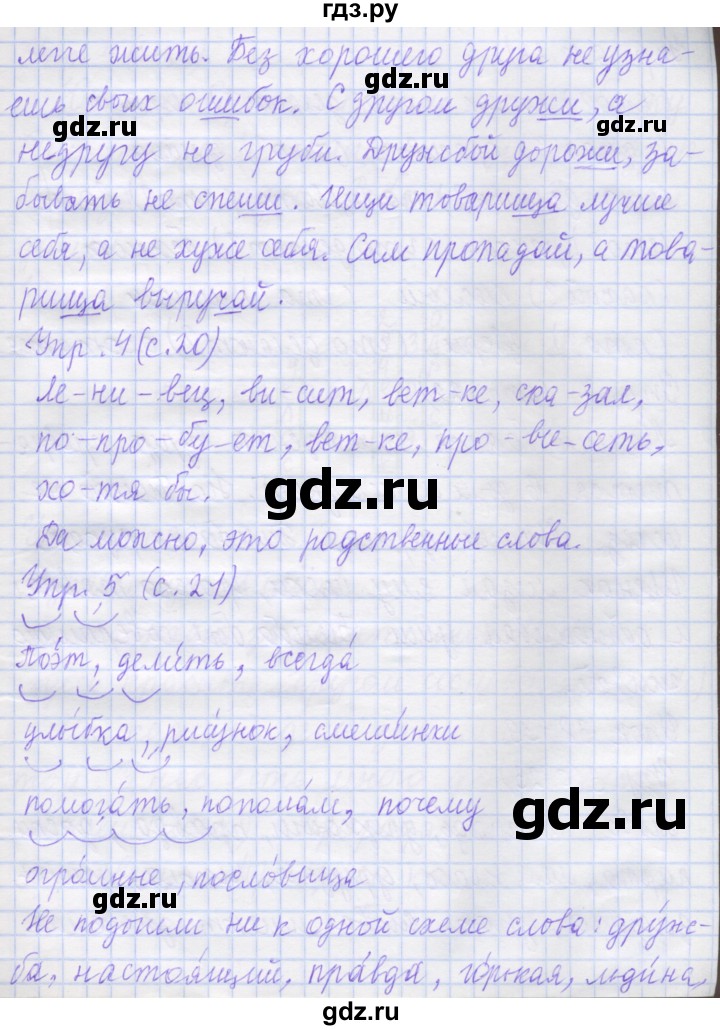 гдз.ру
легче жить. Без хорошего друга не узна-
ешь своих ошибок. С другом дружи, а
gdz.ru
gdz.ru
недругу не груби. Дружбой дорожи, за-
бывать не спеши. Ищи товарища лучше
себя, а не хуже себя. Сам пропадай, а това-
gdz.ru
рища выручай.
Упр. 4 (с. 20)
gdz.ru
Ле-ни-вец, ви-сит, вет-ке, ска-зал,
по-про-бу-ет, вет-ке, про-ви-сеть,
хо-тя бы.
gdz.ru
Да можно, это родственные слова.
Упр. 5 (с. 21)
gdz.ru
Поэ́т, дели́ть, всегда́
gdz.ru
улы́бка, рису́нок, смеши́нки
помога́ть, попола́м, почему
gdz.ru
огро́мные, посло́вица
gdz.ru
Не подошли ни к одной схеме слова: дру́ж-
ба, настоя́щий, пра́вда, го́рькая, льди́на,
gdz.ru
gdz.ru